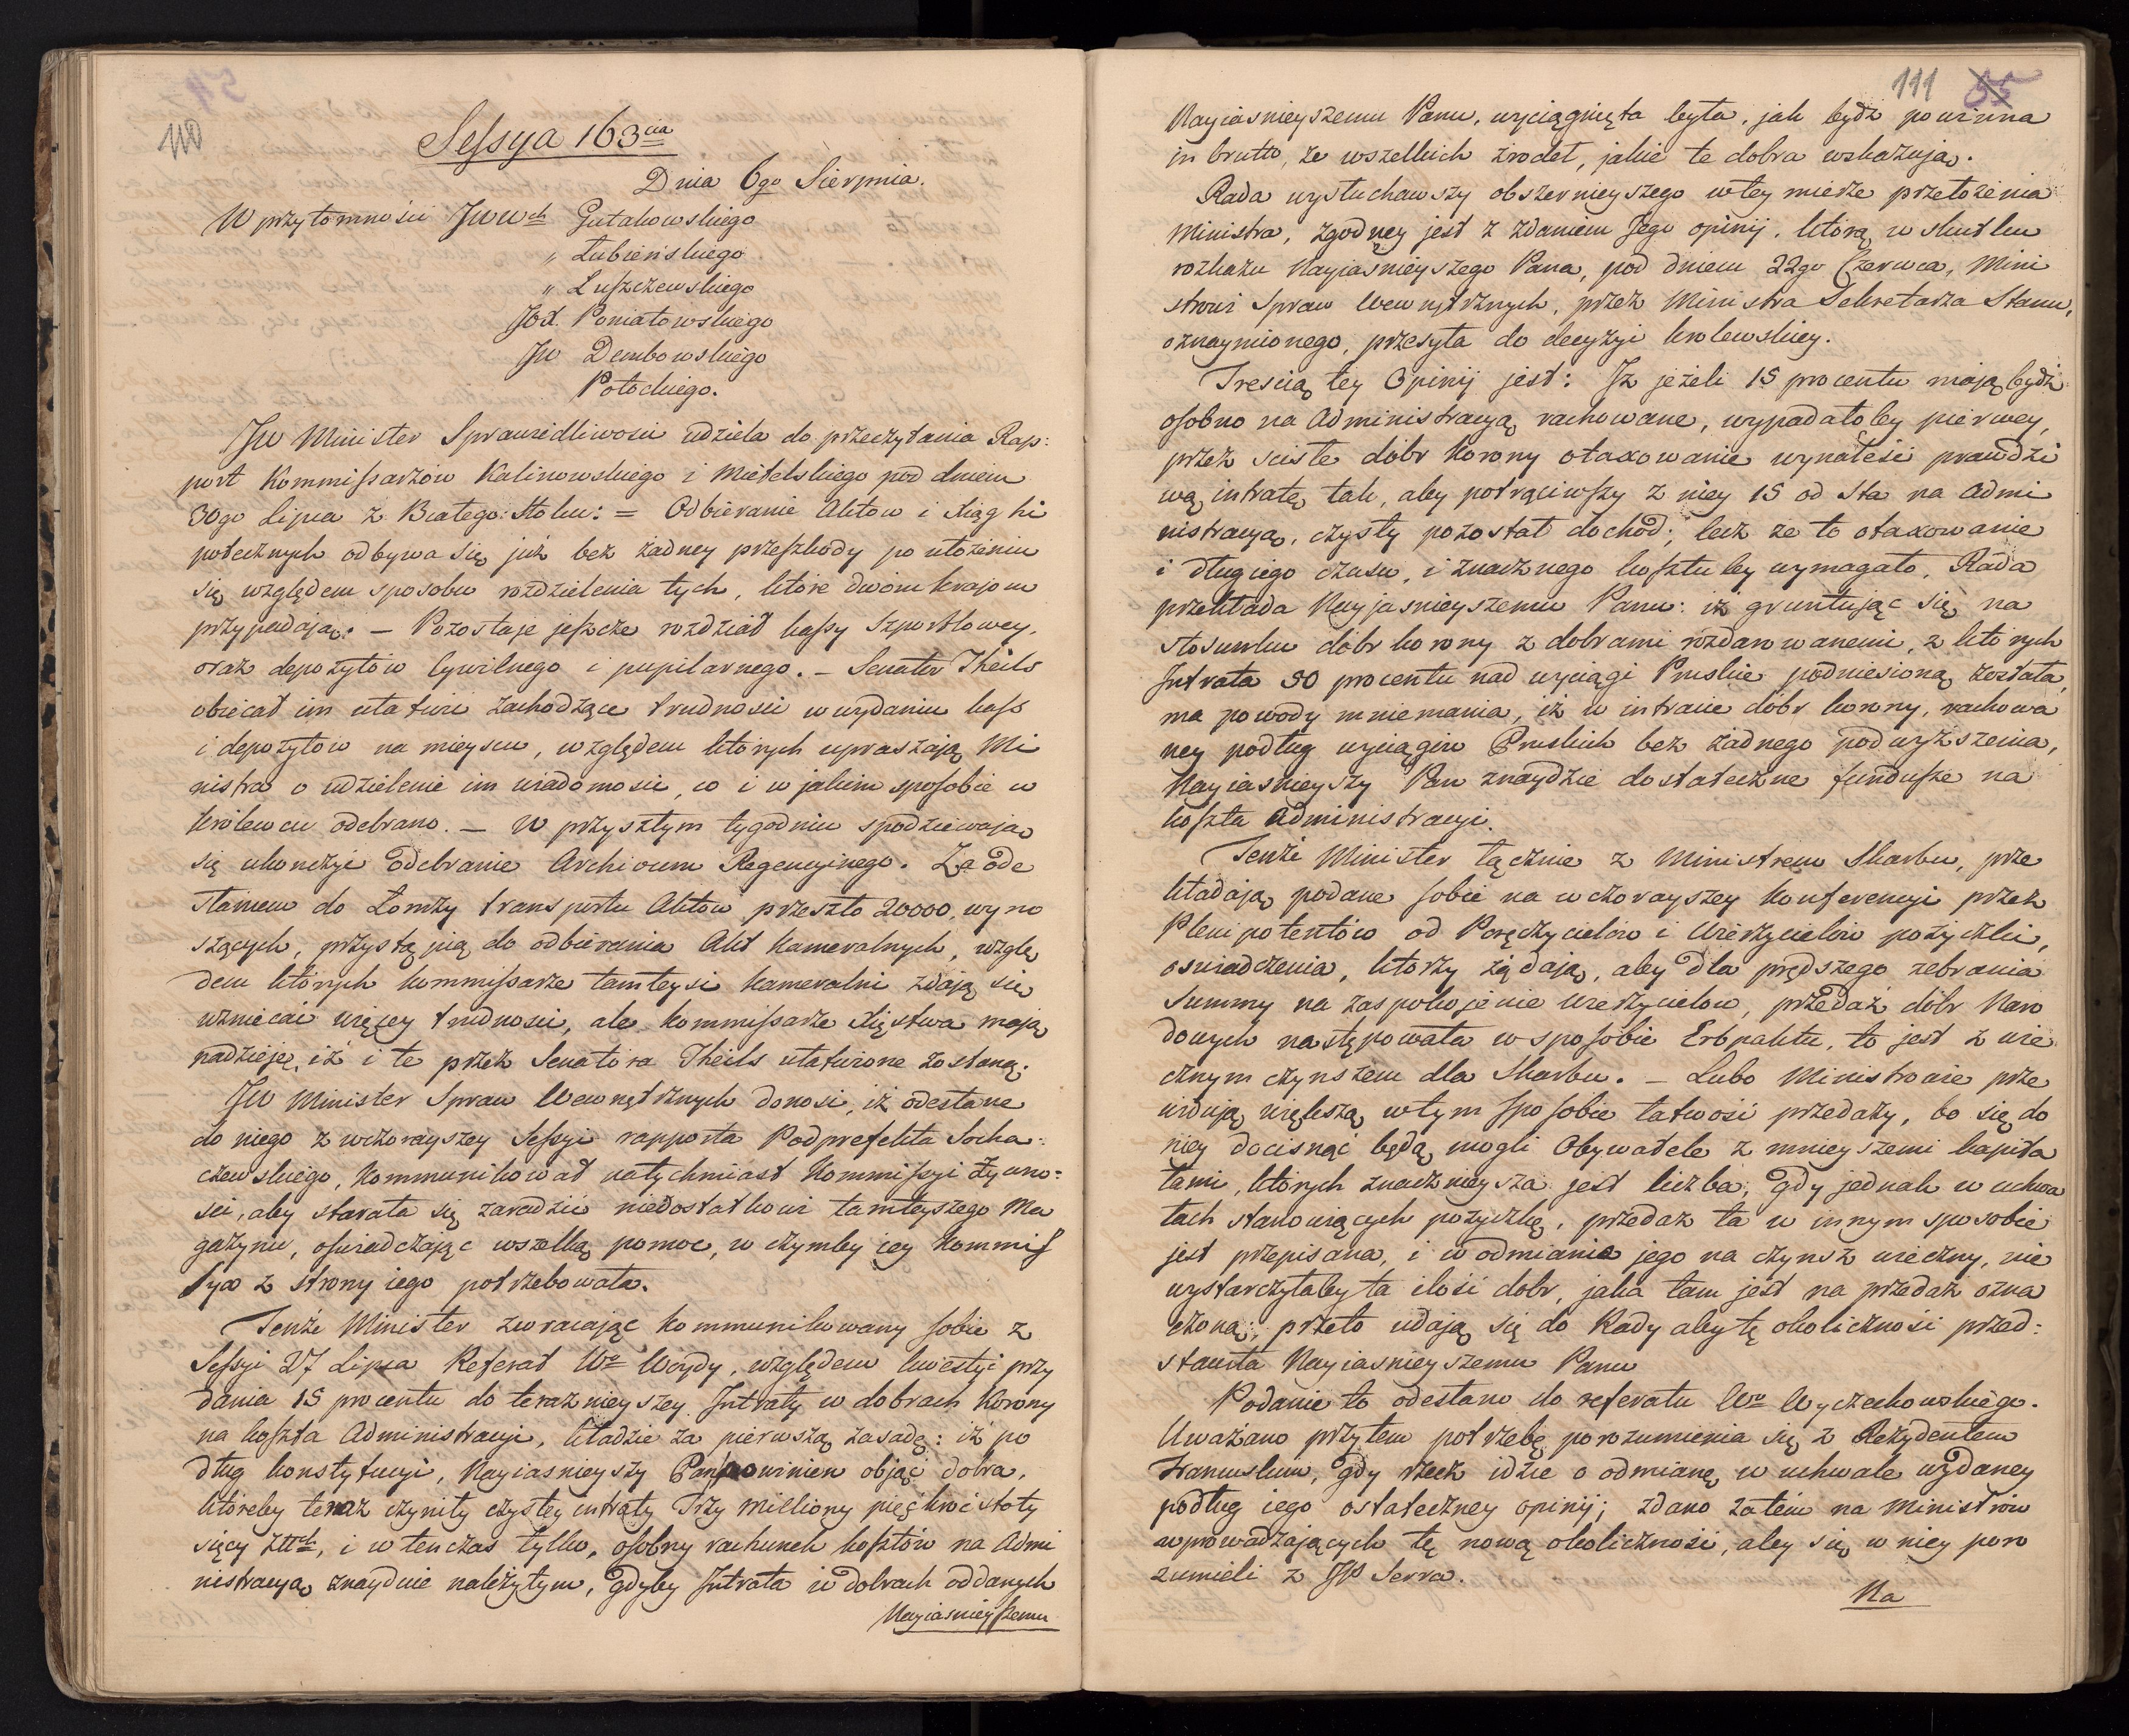 110
Sessya 163cia
Dnia 6go Sierpnia.
W przytomności JWWch Gutakowskiego
" Łubieńskiego
" Luszczewskiego
JOX. Poniatowskiego
JW Dembowskiego
Potockiego.
JW Minister Sprawiedliwości udziela do przeczytania Rap:
port Kommissarzów Kalinowskiego i Mietelskiego pod dniem
30go Lipca z Białego: Stoku: = Odbieranie Aktow i Xiąg hi
potecznych odbywa się już bez żadney przeszkody po ułożeniu
się względem sposobu rozdzielenia tych, które dwóm krajom
przypadają. — Pozostaje jeszcze rozdział kassy Szportlowey,
oraz depozytów Cywilnego i pupilarnego. — Senator Theils
obiecał im ułatwić zachodzące trudności w wydaniu kass
i depozytów na mieyscu, względem których upraszają Mi
nistra o udzielenie im wiadomości, co i w jakim sposobie w
Królewcu odebrano. — W przyszłym tygodniu spodziewają
się ukończyć odebranie Archivum Regencyinego. Za ode
słaniem do Łomży transportu Aktów przeszło 20000, wyno
szących, przystąpią do odbierania Akt Kameralnych, wzglę
dem których kommissarze tamteysi kameralni zdają się
wzniecać więcey trudności, ale kommissarze Xięstwa mają
nadzieję, iż i te przez Senatora Theils ułatwione zostaną.
JW Minister Spraw Wewnętrznych donosi, iż odesłane
do niego z wczorayszey Sessyi rapporta Podprefekta Socha:
czewskiego, kommunikował natychmiast Kommissyi Żywno:
ści, aby starała się zaradzić niedostatkowi tamteyszego Ma
gazynu, oświadczając wszelką pomoc, w czymby iey Kommis
sya z strony iego potrzebowała.
Tenże Minister zwracając kommunikowany sobie z
Sessyi 27 Lipca Referat Wo Woydy, względem kwestyi przy
dania 15 procentu do teraznieyszey Intraty w dobrach Korony
na koszta Administracyi, kładzie za pierwszą zasadę: iż po
dług konstytucyi, Nayiasnieyszy Pan powinien objąć dobra,
któreby teraz czyniły czystey intraty Trzy Milliony pięćkroć sto ty
sięcy złłch, i w tenczas tylko, osobny rachunek kosztów na Admi
nistracyą znayduie należytym, gdyby Intrata w dobrach oddanych
Nayiasnieyszemu
111 55
Nayiasnieyszemu Panu, wyciągnięta była, jak bydź powinna
in brutto, ze wszelkich źrodeł, jakie te dobra wskazują.
Rada wysłuchawszy obszernieyszego wtey mierze przełożenia
Ministra, zgodney jest z zdaniem Jego opinij, którą w skutku
rozkazu Nayiasnieyszego Pana, pod dniem 22go Czerwca, Mini
strowi Spraw Wewnętrznych, przez Ministra Sekretarza Stanu,
oznaymionego, przesyła do decyzyi krolewskiey.
Treścią tey Opinij jest: Iż jeżeli 15 procentu mają bydź
osobno na Administracyą rachowane, wypadałoby pierwey,
przez ścisłe dóbr Korony otaxowanie wynaleść prawdzi
wą intratę tak, aby potrąciwszy z niey 15 od Sta na Admi
nistracyą, czysty pozostał dochód; lecz że to otaxowanie
i długiego czasu, i znacznego kosztu by wymagało, Rada
przekłada Nayjasnieyszemu Panu: iż gruntując się na
stosunku dóbr korony z dobrami rozdarowanemi, z których
Intrata 50 procentu nad wyciągi Pruskie podniesioną została,
ma powody mniemania, iż w intracie dóbr korony, rachowa
ney podług wyciągów Pruskich bez żadnego podwyższenia,
Nayiasnieyszy Pan znaydzie dostateczne fundusze na
koszta Administracyi.
Tenże Minister łącznie z Ministrem Skarbu, prze
kładają podane sobie na wczorayszey Konferencyi przez
Plenipotentów od Poręczycielów i Wierzycielów pożyczki,
oświadczenia, którzy żądają, aby dla prędszego zebrania
Summy na zaspokojenie Wierzycielow, przedaż dóbr Naro
dowych następowała w sposobie Erbpaktu, to jest z wie
cznym czynszem dla Skarbu. — Lubo Ministrowie prze
widują większą wtym sposobie łatwość przedaży, bo się do
niey docisnąć będą mogli Obywatele z mnieyszemi kapita
łami, których znacznieysza jest liczba, gdy jednak w uchwa
łach stanowiących pożyczkę, przedaż ta w innym sposobie
jest przepisana, i w odmianie jego na czynsz wieczny, nie
wystarczyłaby ta ilość dobr, jaka tam jest na przedaż ozna
czoną; przeto udają się do Rady aby tę okoliczność przed:
stawiła Nayiasnieyszemu Panu
Podanie to odesłano do referatu Wo Wyczechowskiego.
Uważano przytem potrzebę porozumienia się z Rezydentem
Francuskim, gdy rzecz idzie o odmianę w uchwale wydaney
podług iego ostateczney opinij; zdano zatém na Ministrów
wprowadzających tę nową okoliczność, aby się w niey poro
zumieli z JP Serra.
Na